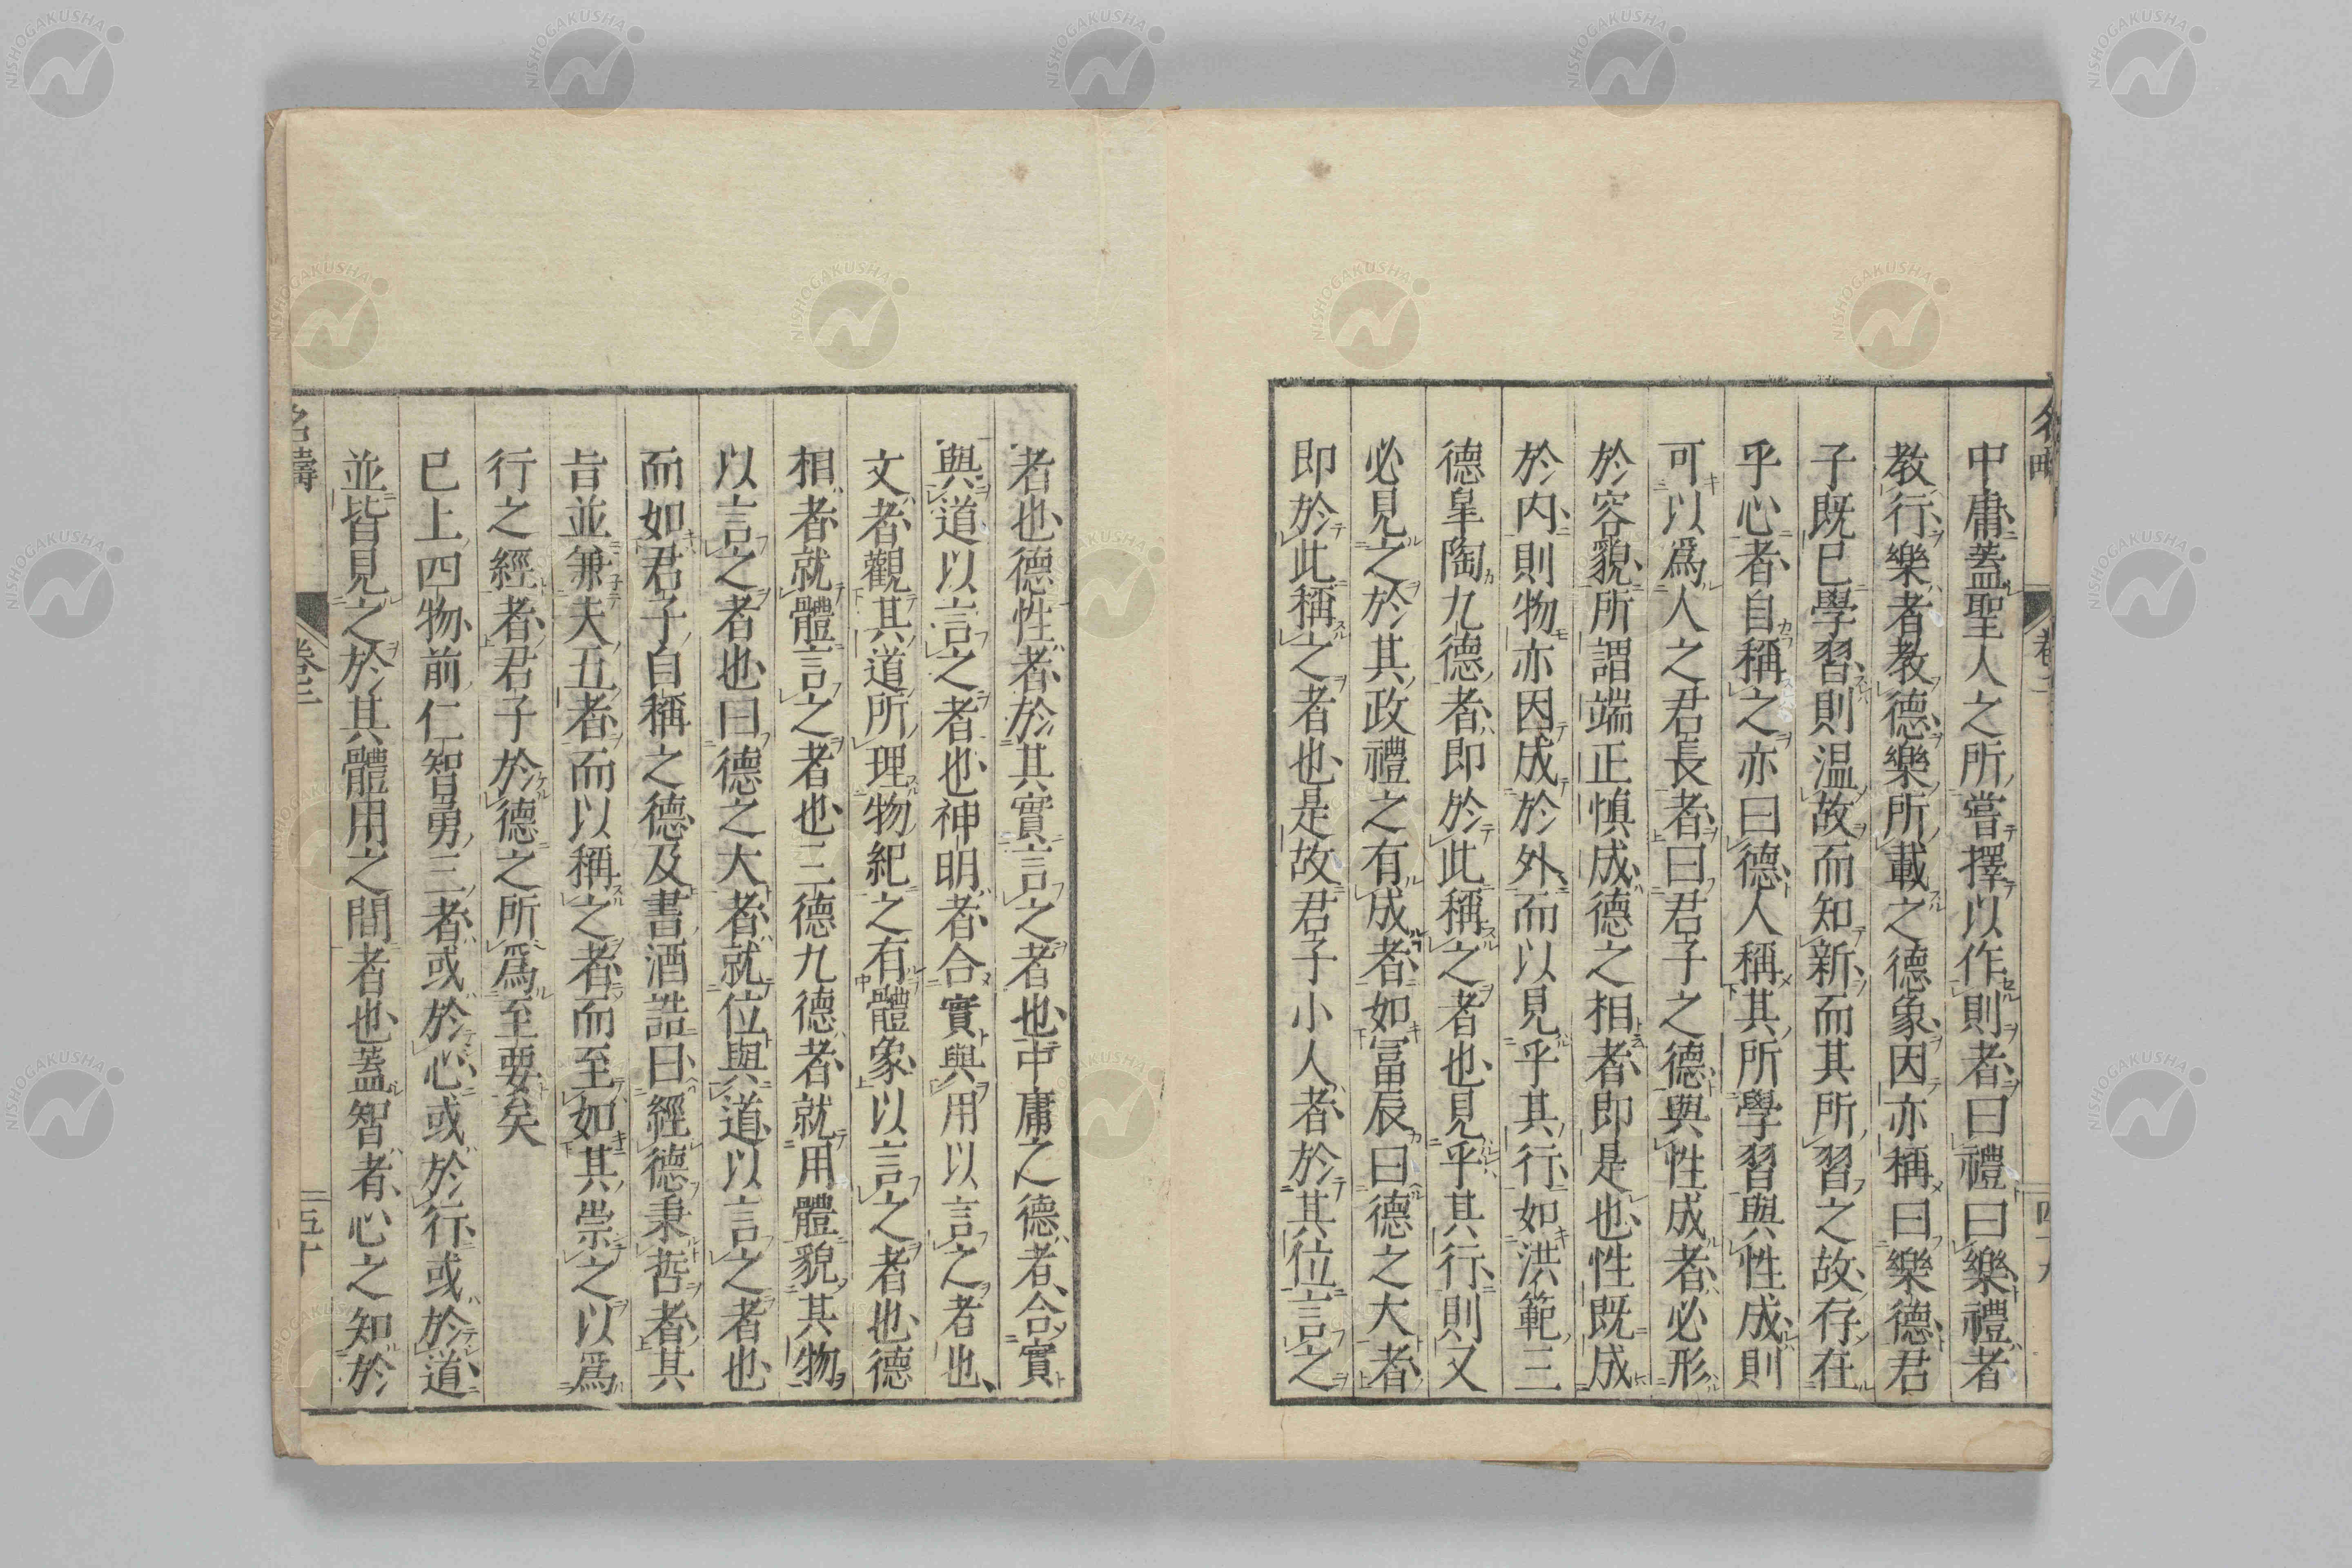 中庸蓋聖人之所嘗擇以作則者曰禮曰樂禮者
教行樂者教德樂所載之德象因亦稱曰樂德君
子既已學習則温故而知新而其所習之故存在
乎心者自稱之亦曰德人稱其所學習與性成則
可以爲人之君長者曰君子之德與性成者必形
於容貌所謂端正慎成德之相者即是也性既成
於内則物亦因成於外而以見乎其行如洪範三
德皐陶九德者即於此稱之者也見乎其行則又
必見之於其政禮之有成者如冨辰曰德之大者
即於此稱之者也是故君子小人者於其位言之
者也德性者於其實言之者也中庸之德者合實
與道以言之者也神明者合實與用以言之者也
文者觀其道所理物紀之有體象以言之者也德
相者就體言之者也三德九德者就用體貌其物
以言之者也曰德之大者就位與道以言之者也
而如君子自稱之德及書酒誥曰經德秉哲者其
旨並兼夫五者而以稱之者而至如其崇之以爲
行之經者君子於德之所爲至要矣
已上四物前仁智勇三者或於心或於行或於道
並皆見之於其體用之間者也蓋智者心之知於
名疇
卷三
五十